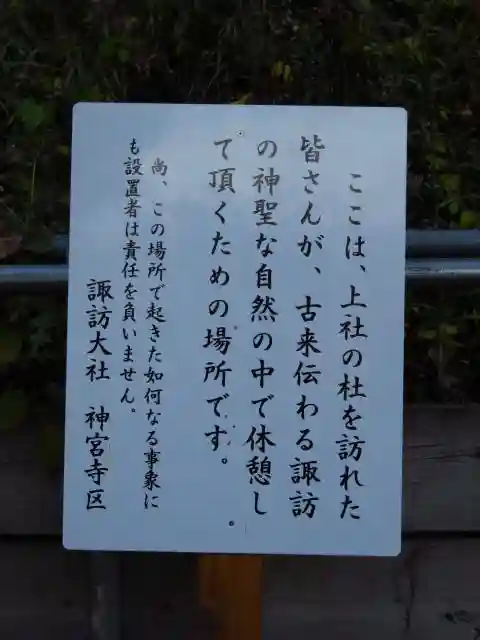 ここは、上社の杜を訪れた
皆さんが、古来伝わる諏訪
の神聖な自然の中で休憩し
て頂くための場所です。
尚、この場所で起きた如何なる事象に
も設置者は責任を負いません。
諏訪大社 神宮寺区